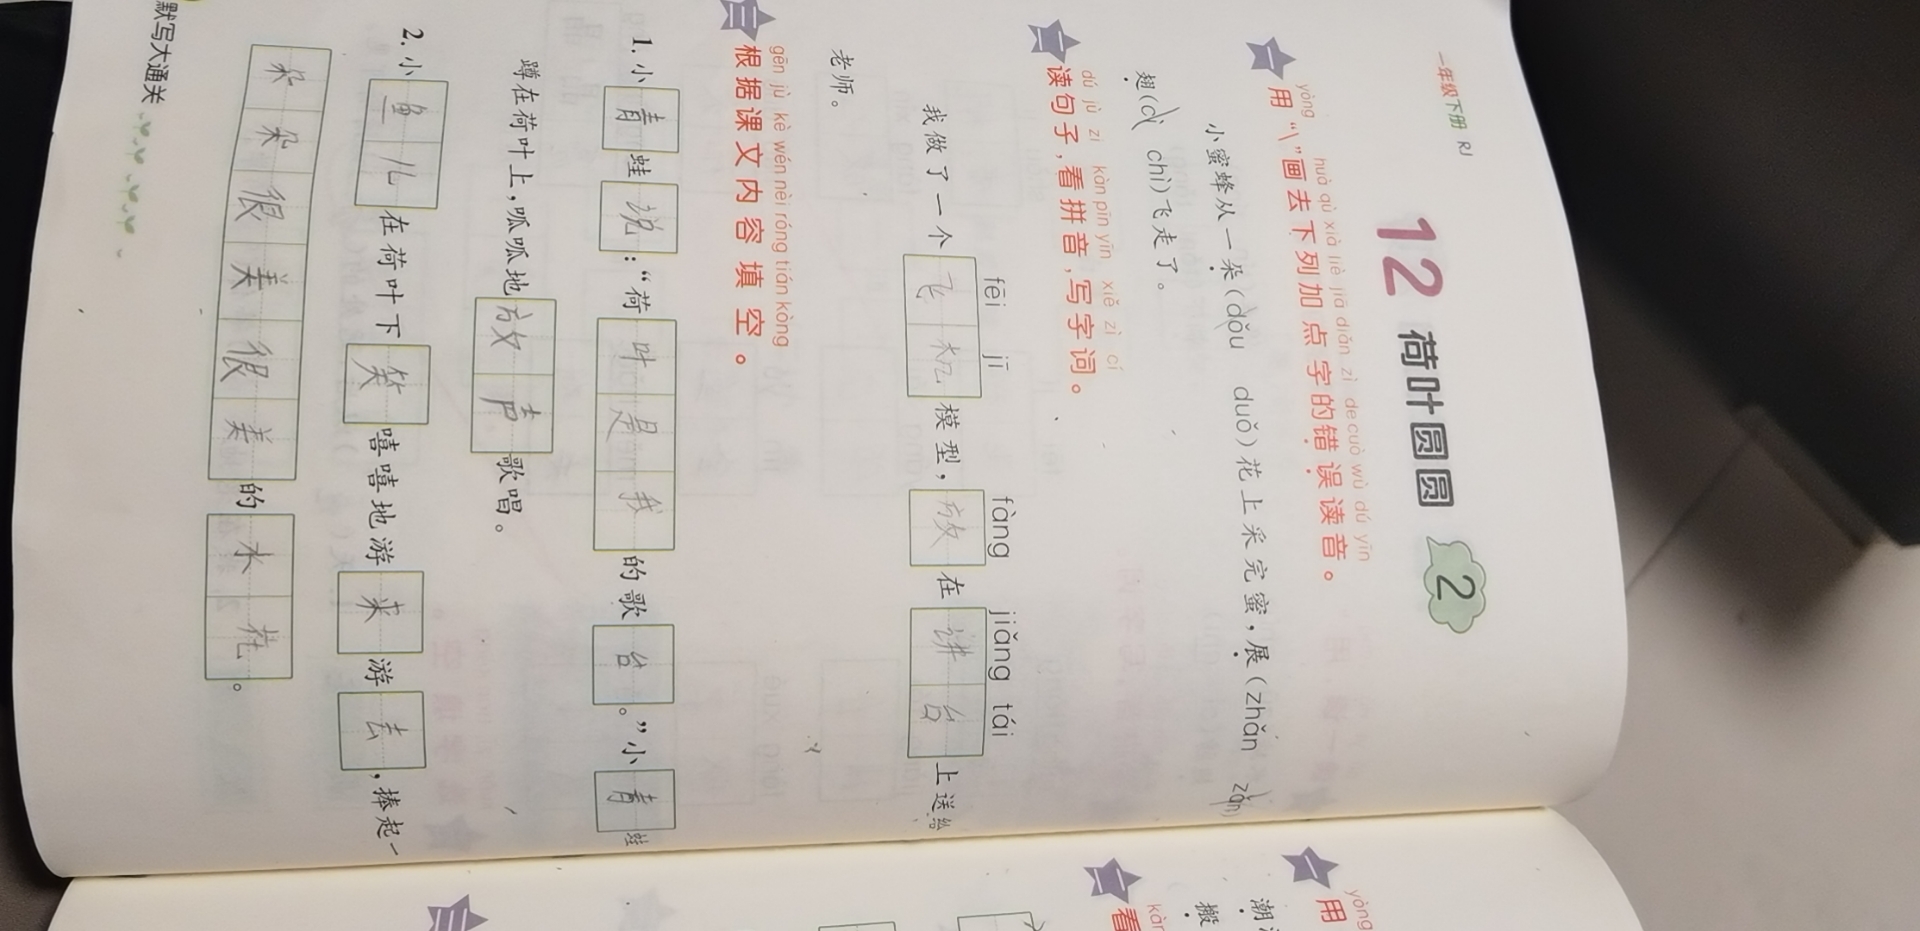 一年级下册 RJ
12 荷叶圆圆 2
yòng huà qù xià liè jiā diǎn zì de cuò wù dú yīn
一 用“\”画去下列加点字的错误读音。
小蜜蜂从一朵(dǒu duǒ)花上采完蜜,展(zhǎn zǎn)
翅(cì chì)飞走了。
dú jù zi kàn pīn yīn xiě zì cí
二 读句子,看拼音,写字词。
fēi jī fàng jiǎng tái
我做了一个飞机模型,放在讲台上送给
老师。
gēn jù kè wén nèi róng tián kòng
三 根据课文内容填空。
1.小青蛙说:“荷叶是我的歌台。”小青蛙
蹲在荷叶上,呱呱地放声歌唱。
2.小鱼儿在荷叶下笑嘻嘻地游来游去,捧起一
朵朵很美很美的水花。
默写大通关
yòng
一 用
潮
搬
kàn
二 看
三